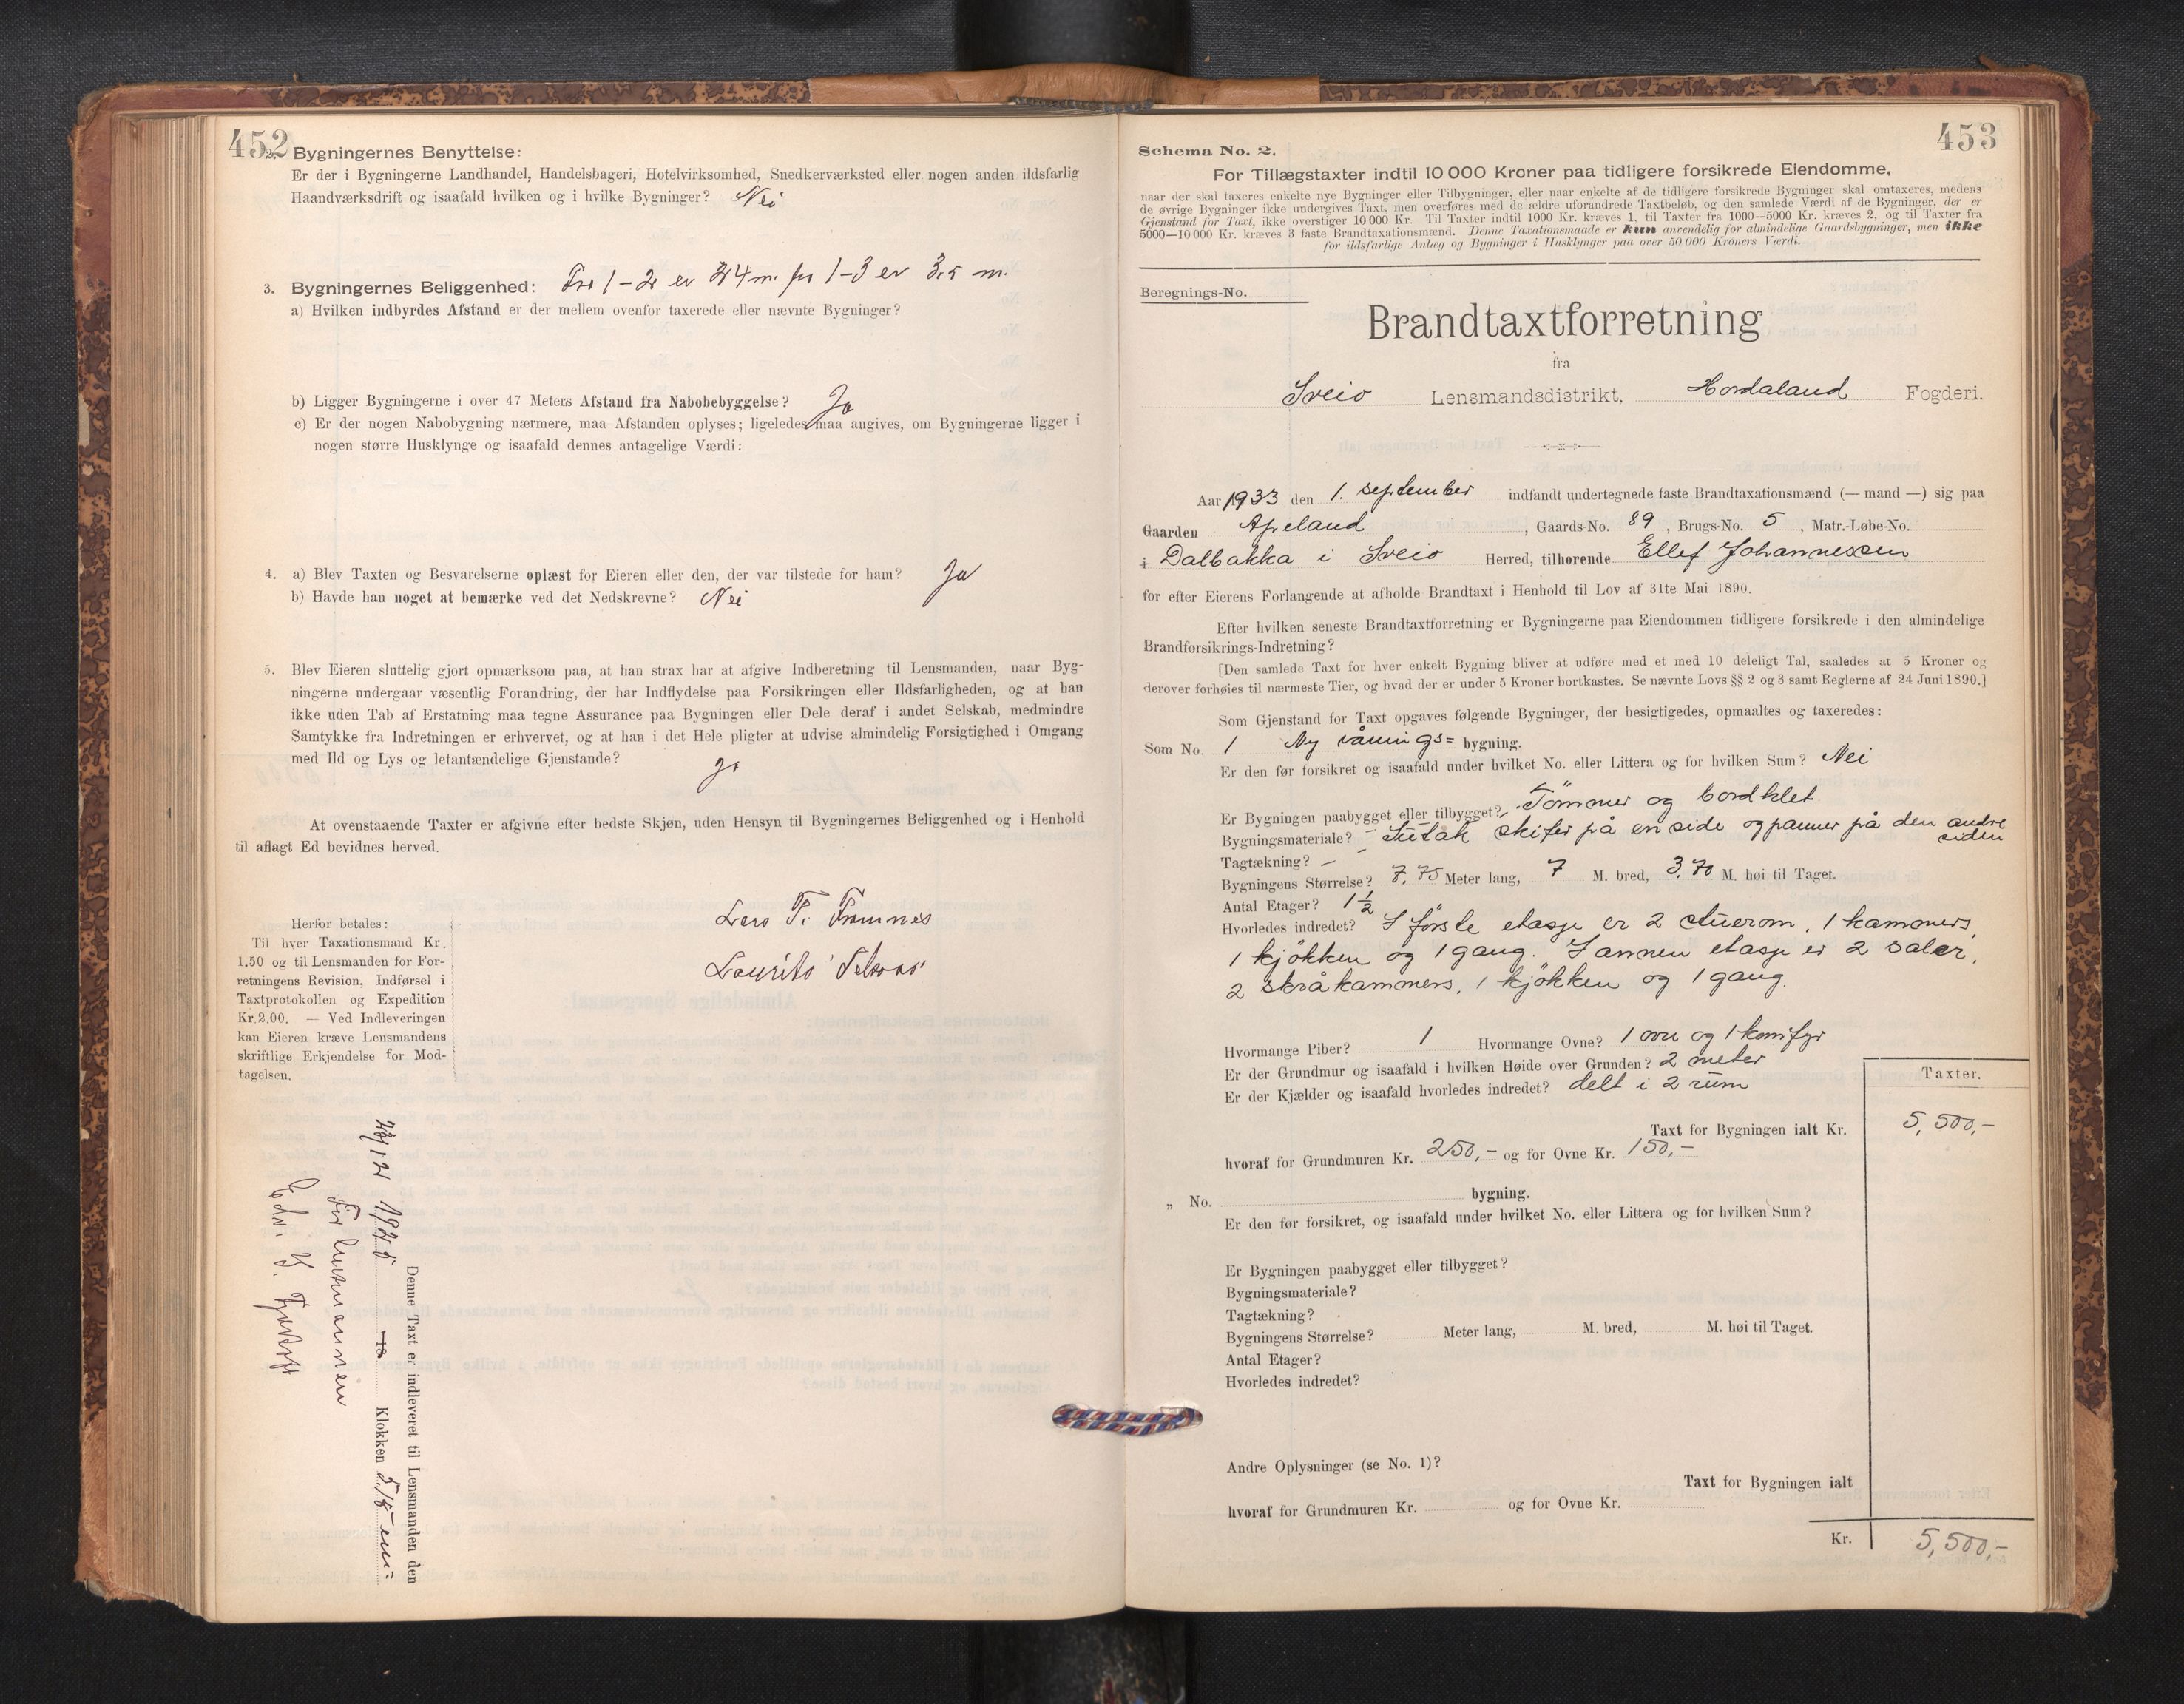 452
2. Bygningernes Benyttelse:
Er der i Bygningerne Landhandel, Handelsbageri, Hotelvirksomhed, Snedkerværksted eller nogen anden ildsfarlig
Haandværksdrift og isaafald hvilken og i hvilke Bygninger? Nei
3. Bygningernes Beliggenhed: Fra 1-2 er 24 m. fra 1-3 er 3.5 m.
a) Hvilken indbyrdes Afstand er der mellem ovenfor taxerede eller nævnte Bygninger?
b) Ligger Bygningerne i over 47 Meters Afstand fra Nabobebyggelse? Ja
c) Er der nogen Nabobygning nærmere, maa Afstanden oplyses; ligeledes maa angives, om Bygningerne ligger i
nogen større Husklynge og isaafald dennes antagelige Værdi:
4. a) Blev Taxten og Besvarelserne oplæst for Eieren eller den, der var tilstede for ham? Ja
b) Havde han noget at bemærke ved det Nedskrevne? Nei
5. Blev Eieren sluttelig gjort opmærksom paa, at han strax har at afgive Indberetning til Lensmanden, naar Byg-
ningerne undergaar væsentlig Forandring, der har Indflydelse paa Forsikringen eller Ildsfarligheden, og at han
ikke uden Tab af Erstatning maa tegne Assurance paa Bygningen eller Dele deraf i andet Selskab, medmindre
Samtykke fra Indretningen er erhvervet, og at han i det Hele pligter at udvise almindelig Forsigtighed i Omgang
med Ild og Lys og letantændelige Gjenstande? Ja
At ovenstaaende Taxter er afgivne efter bedste Skjøn, uden Hensyn til Bygningernes Beliggenhed og i Henhold
til aflagt Ed bevidnes herved.
Lars T. Framnes
Laurits
Herfor betales:
Til hver Taxationsmand Kr.
1.50 og til Lensmanden for For-
retningens Revision, Indførsel i
Taxtprotokollen og Expedition
Kr. 2.00. — Ved Indleveringen
kan Eieren kræve Lensmandens
skriftlige Erkjendelse for Mod-
tagelsen.
Denne Taxt er indleveret til Lensmanden den
Klokken
For lensmannen
453
Schema No. 2.
For Tillægstaxter indtil 10 000 Kroner paa tidligere forsikrede Eiendomme,
naar der skal taxeres enkelte nye Bygninger eller Tilbygninger, eller naar enkelte af de tidligere forsikrede Bygninger skal omtaxeres, medens
de øvrige Bygninger ikke undergives Taxt, men overføres med de ældre uforandrede Taxtbeløb, og den samlede Værdi af de Bygninger, der er
Gjenstand for Taxt, ikke overstiger 10 000 Kr. Til Taxter indtil 1000 Kr. kræves 1, til Taxter fra 1000—5000 Kr. kræves 2, og til Taxter fra
5000—10 000 Kr. kræves 3 faste Brandtaxationsmænd. Denne Taxationsmaade er kun anvendelig for almindelige Gaardsbygninger, men ikke
for ildsfarlige Anlæg og Bygninger i Husklynger paa over 50 000 Kroners Værdi.
Beregnings-No.
Brandtaxtforretning
fra
Sveio Lensmandsdistrikt, Hordaland Fogderi.
Aar 1933 den 1. september indfandt undertegnede faste Brandtaxationsmænd (— mand —) sig paa
Gaarden Apeland, Gaards-No. 89, Brugs-No. 5, Matr.-Løbe-No.
i Dalbakka i Sveio Herred, tilhørende Ellef Johannessen
for efter Eierens Forlangende at afholde Brandtaxt i Henhold til Lov af 31te Mai 1890.
Efter hvilken seneste Brandtaxtforretning er Bygningerne paa Eiendommen tidligere forsikrede i den almindelige
Brandforsikrings-Indretning?
[Den samlede Taxt for hver enkelt Bygning bliver at udføre med et med 10 deleligt Tal, saaledes at 5 Kroner og
derover forhøies til nærmeste Tier, og hvad der er under 5 Kroner bortkastes. Se nævnte Lovs §§ 2 og 3 samt Reglerne af 24 Juni 1890.]
Som Gjenstand for Taxt opgaves følgende Bygninger, der besigtigedes, opmaaltes og taxeredes:
Som No. 1 Ny vånings= bygning.
Er den før forsikret og isaafald under hvilket No. eller Littera og for hvilken Sum? Nei
Er Bygningen paabygget eller tilbygget? Tömmer og bordklet
Bygningsmateriale? – Sutak skifer på en side og panner på den andre
siden
Tagtækning? –
Bygningens Størrelse? 7,75 Meter lang, 7 M. bred, 3,70 M. høi til Taget.
Antal Etager? 1½
Hvorledes indredet? I förste etasje er 2 stuerom, 1 kammers,
1 kjökken og 1 gang. I annen etasje er 2 saler,
2 skråkammers, 1 kjökken og 1 gang.
Hvormange Piber? 1 Hvormange Ovne? 1 ovn og 1 komfyr
Er der Grundmur og isaafald i hvilken Høide over Grunden? 2 meter
Er der Kjælder og isaafald hvorledes indredet? delt i 2 rum
Taxter.
Taxt for Bygningen ialt Kr. 5,500,-
hvoraf for Grundmuren Kr. 250,- og for Ovne Kr. 150,-
„ No. bygning.
Er den før forsikret, og isaafald under hvilket No. eller Littera og for hvilken Sum?
Er Bygningen paabygget eller tilbygget?
Bygningsmateriale?
Tagtækning?
Bygningens Størrelse? Meter lang, M. bred, M. høi til Taget.
Antal Etager?
Hvorledes indredet?
Andre Oplysninger (se No. 1)?
Taxt for Bygningen ialt
hvoraf for Grundmuren Kr. og for Ovne Kr.
Kr. 5,500,-